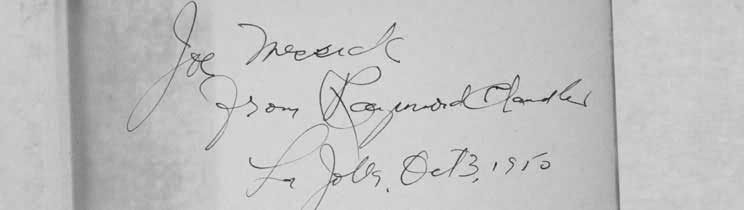 Joe Messick
From Raymond Chandler
La Jolla, Oct 3, 1950